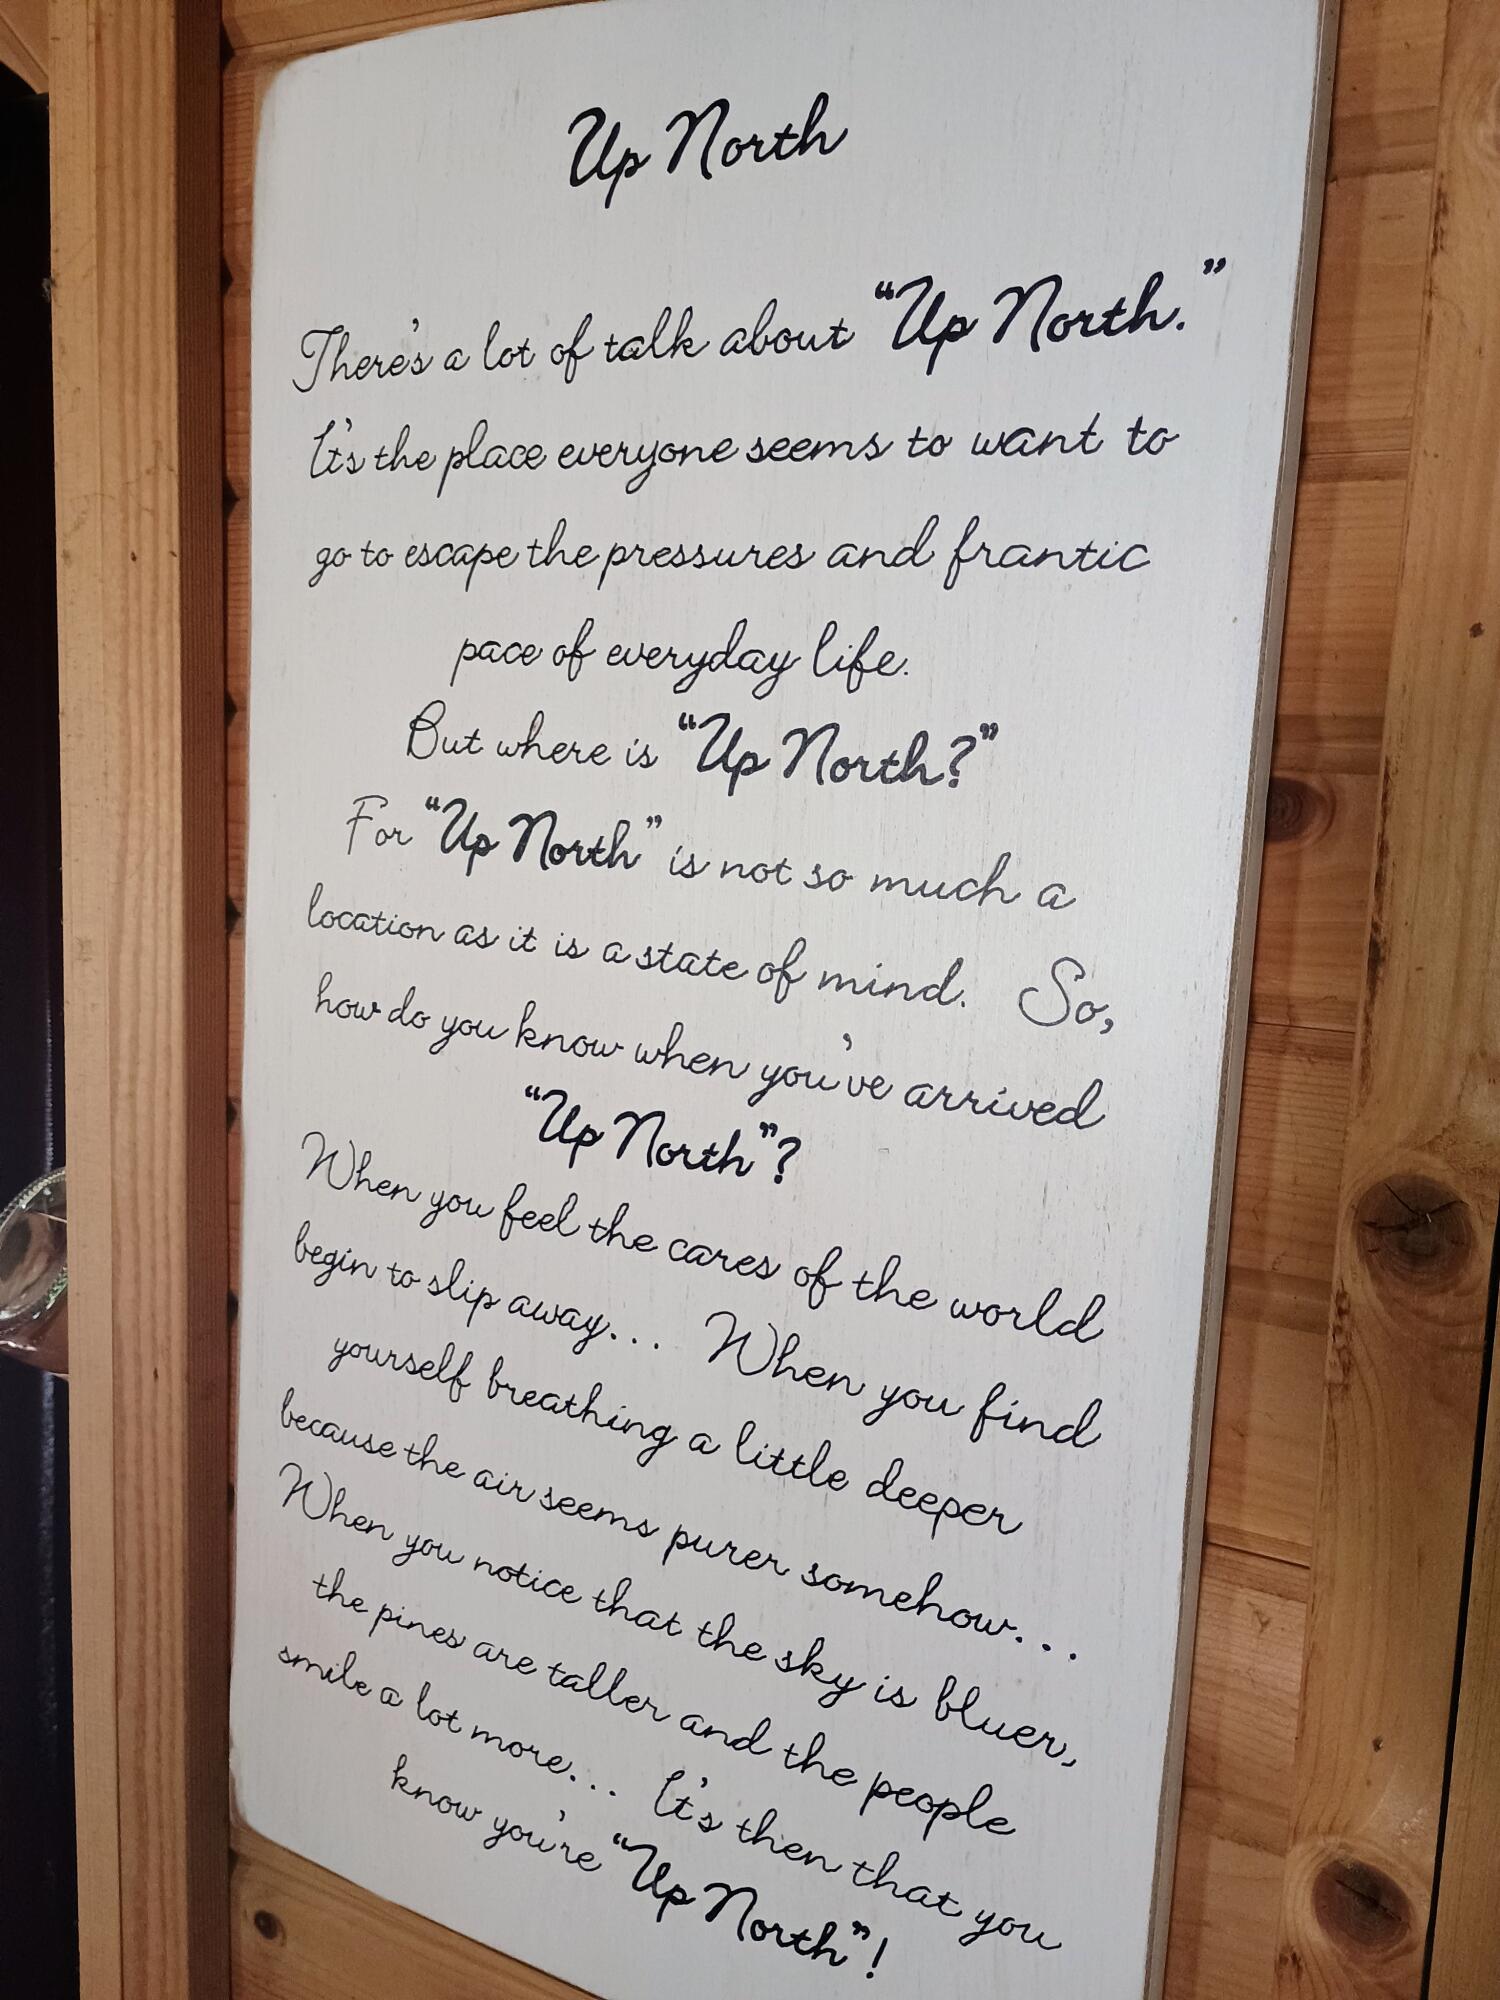 Up North
There's a lot of talk about “Up North.”
It's the place everyone seems to want to
go to escape the pressures and frantic
pace of everyday life.
But where is “Up North?”
For “Up North” is not so much a
location as it is a state of mind. So,
how do you know when you've arrived
“Up North”?
When you feel the cares of the world
begin to slip away... When you find
yourself breathing a little deeper
because the air seems purer somehow...
When you notice that the sky is bluer,
the pines are taller and the people
smile a lot more... It's then that you
know you're “Up North”!